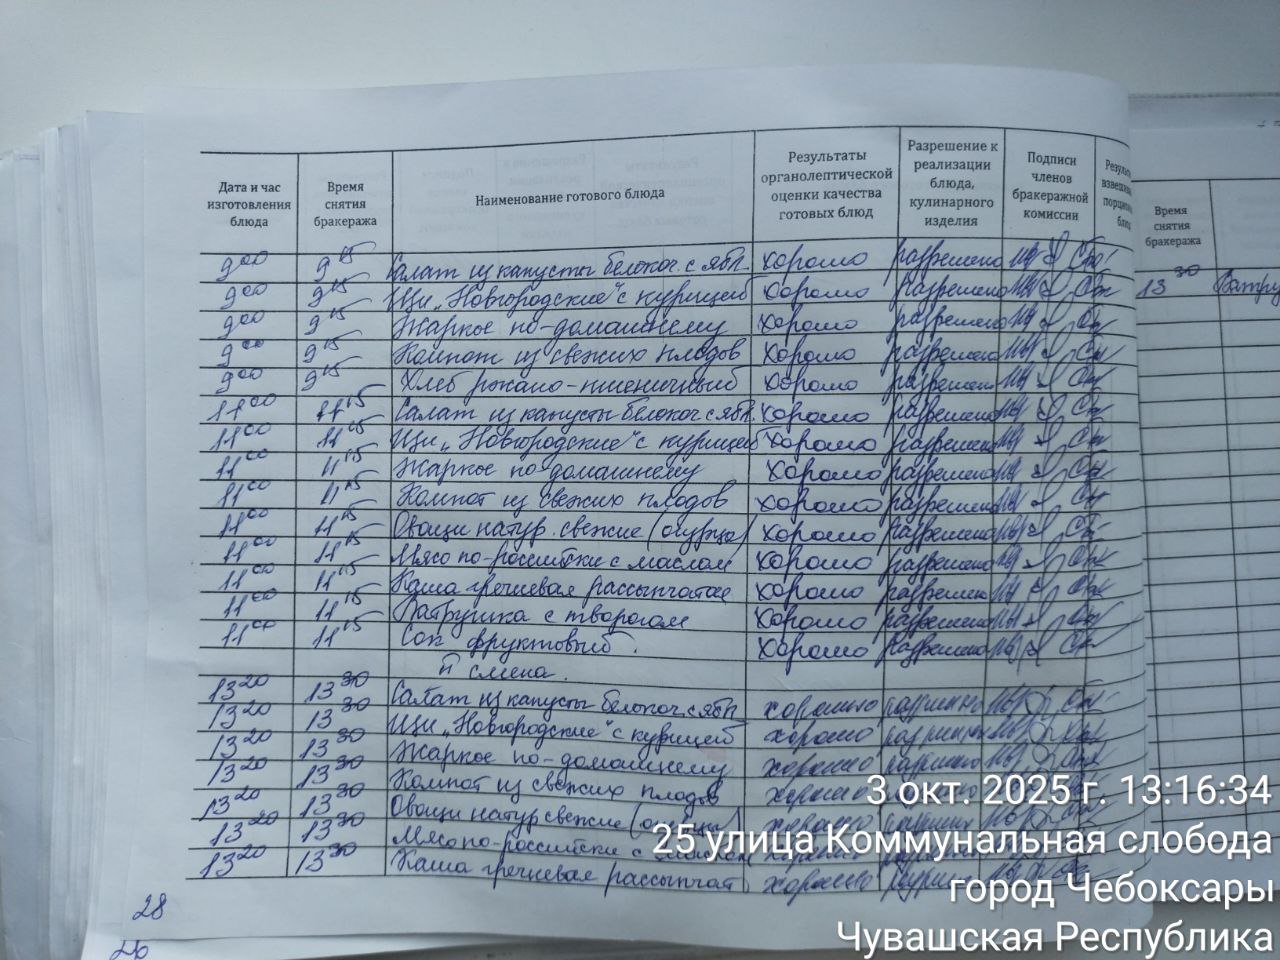 Дата и час изготовления блюда | Время снятия бракеража | Наименование готового блюда | Результаты органолептической оценки качества готовых блюд | Разрешение к реализации блюда, кулинарного изделия | Подписи членов бракеражной комиссии
9⁰⁰ 9¹⁵ Салат из капусты белокоч. с ябл. хорошо разрешено
9⁰⁰ 9¹⁵ Щи „Новгородские" с курицей хорошо разрешено
9⁰⁰ 9¹⁵ Жаркое по-домашнему хорошо разрешено
9⁰⁰ 9¹⁵ Компот из свежих плодов хорошо разрешено
9⁰⁰ 9¹⁵ Хлеб ржано-пшеничный хорошо разрешено
11⁰⁰ 11¹⁵ Салат из капусты белокоч с ябл. хорошо разрешено
11⁰⁰ 11¹⁵ Щи „Новгородские" с курицей хорошо разрешено
11⁰⁰ 11¹⁵ Жаркое по-домашнему хорошо разрешено
11⁰⁰ 11¹⁵ Компот из свежих плодов хорошо разрешено
11⁰⁰ 11¹⁵ Овощи натур. свежие (огурцы) хорошо разрешено
11⁰⁰ 11¹⁵ Мясо по-российски с маслом хорошо разрешено
11⁰⁰ 11¹⁵ Каша гречневая рассыпчатая хорошо разрешен
11⁰⁰ 11¹⁵ Ватрушка с творогом хорошо разрешено
11⁰⁰ 11¹⁵ Сок фруктовый. хорошо разрешено
II смена.
13²⁰ 13³⁰ Салат из капусты белокоч. с ябл хорошо
13²⁰ 13³⁰ Щи „Новгородские" с курицей хорошо
13²⁰ 13³⁰ Жаркое по-домашнему хорошо
13²⁰ 13³⁰ Компот из свежих плодов хорошо
13²⁰ 13³⁰ Овощи натур свежие (огурцы) хорошо
13²⁰ 13³⁰ Мясо по-российски с маслом
13²⁰ 13³⁰ Каша гречневая рассыпчат хорошо
28
26
Время снятия бракеража
13³⁰
3 окт. 2025 г. 13:16:34
25 улица Коммунальная слобода
город Чебоксары
Чувашская Республика